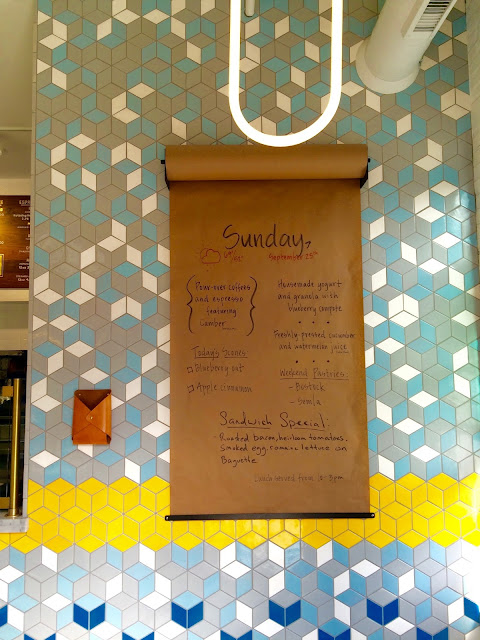 Sunday,
September 25th
Pour-over coffees
and espresso
featuring
Camber
Today's Scones:
Blueberry oat
Apple cinnamon
Homemade yogurt
and granola with
blueberry compote
Freshly-pressed cucumber
and watermelon juice
Weekend Pastries:
- Bostock
- Semla
Sandwich Special:
- Roasted bacon, heirloom tomatoes,
smoked egg, romaine lettuce on
Baguette
Lunch served from 11-3pm